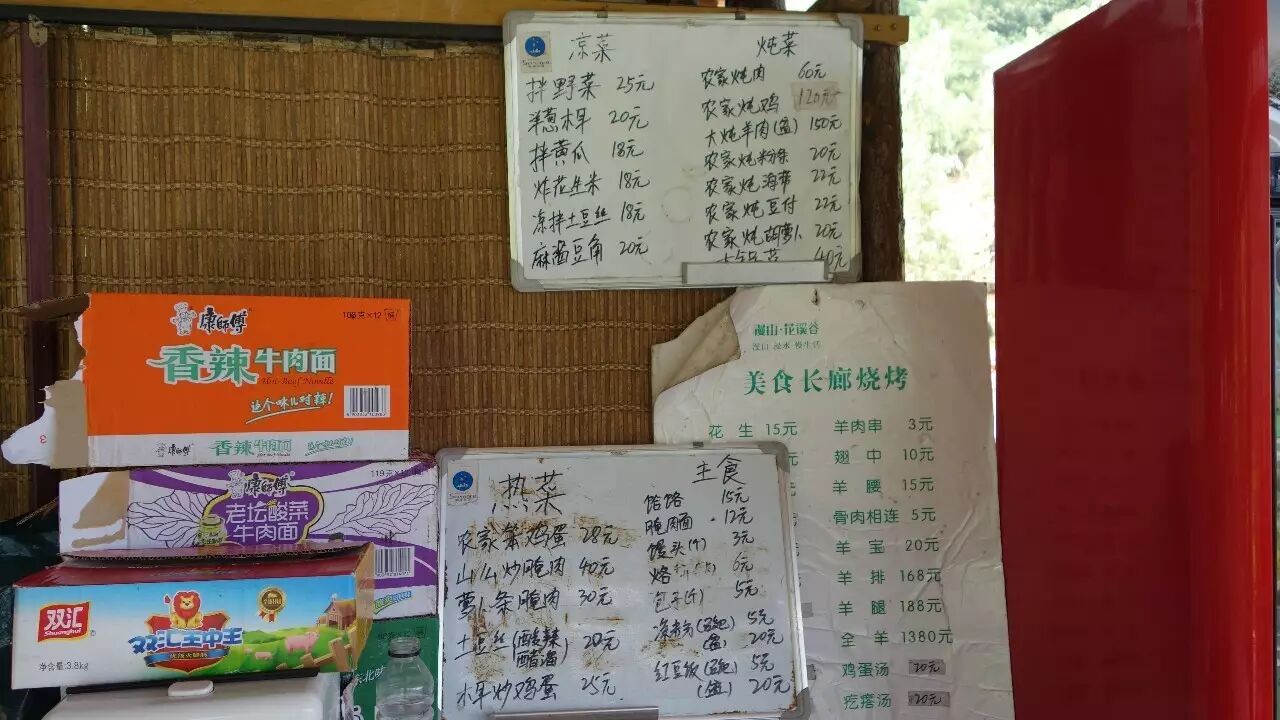 凉菜
拌野菜 25元
洋葱木耳 20元
拌黄瓜 18元
炸花生米 18元
凉拌土豆丝 18元
麻酱豆角 20元
炖菜
农家炖肉 60元
农家炖鸡 120元
大炖羊肉(盆) 150元
农家炖粉条 20元
农家炖海带 22元
农家炖豆付 22元
农家炖胡萝卜 20元
40元
康師傅
香辣牛肉面
Hot-Beef Noodle
这个味儿对辣!
康師傅 香辣牛肉面
康師傅
老坛酸菜
牛肉面
双汇
Shuanghui
双汇王中王
净含量: 3.8kg
热菜
农家笨鸡蛋 28元
山么炒腌肉 40元
萝卜条腌肉 30元
土豆丝(酸辣 醋溜) 20元
木耳炒鸡蛋 25元
主食
饸饹 15元
腌肉面 12元
馒头(个) 3元
烙 6元
包子(个) 5元
5元
(盆) 20元
红豆饭 5元
(盆) 20元
漫山·花溪谷
美食长廊烧烤
花生 15元
羊肉串 3元
翅中 10元
羊腰 15元
骨肉相连 5元
羊宝 20元
羊排 168元
羊腿 188元
全羊 1380元
鸡蛋汤 20元
疙瘩汤 20元